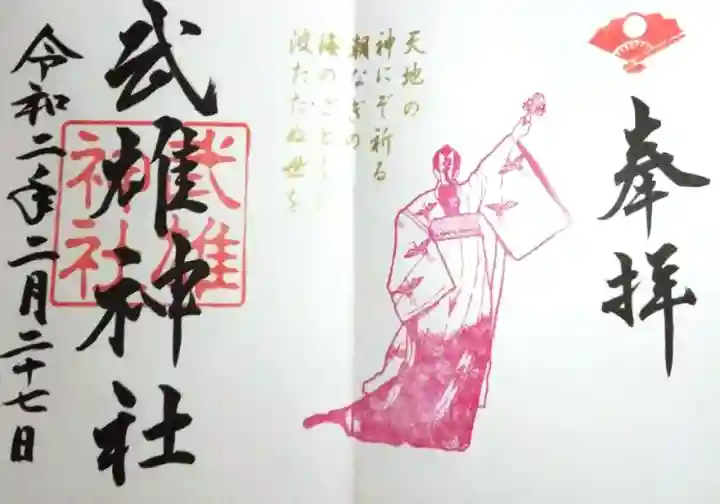 奉拝
天地の
神にぞ祈る
朝なぎの
海のごとくに
波たたぬ世を
武雄神社
武雄
神社
令和二年二月二十七日